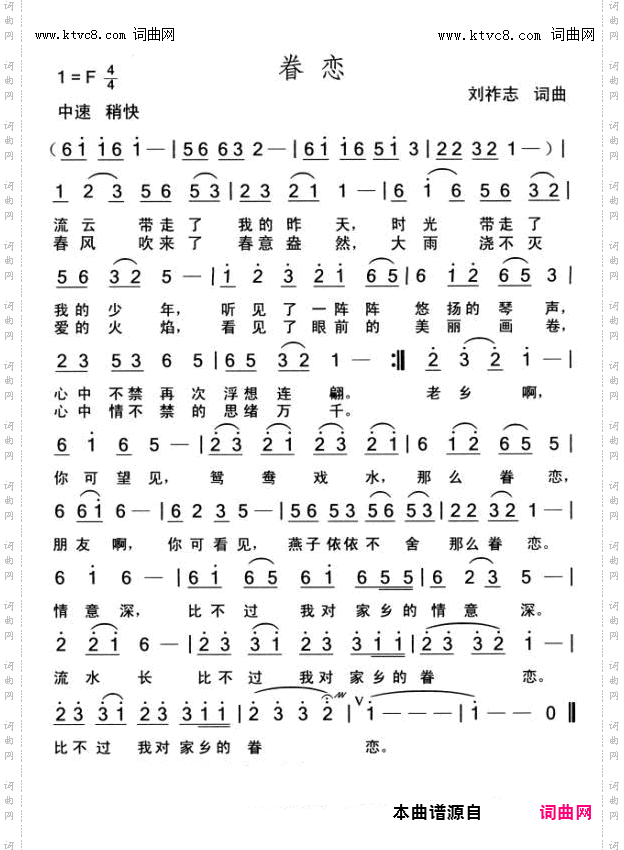 www.ktvc8.com 词曲网 www.ktvc8.com 词曲网
眷恋
1=F 4/4
刘祚志 词曲
中速 稍快
(6i i6 i —|56 63 2 —|6i i6 5i 3|22 32 1 —)|
1 2 3 56 53|23 21 1 —|6 i 6 56 32|
流云 带走了 我的昨 天, 时光 带走了
春风 吹来了 春意盎 然, 大雨 浇不灭
56 32 5 —|i2 23 2i 65|6 i2 65 3|
我的少 年, 听见了一阵阵 悠扬的琴 声,
爱的火 焰, 看见了眼前的 美丽画 卷,
23 53 6 5|65 32 1 — :‖ 2 32 i|
心中不禁再次浮想连 翩。 老乡 啊,
心中情不禁的思绪万 千。
6 i 65 —|23 2i 23 2i|6 i2 65 5|
你可望见, 鸳鸯戏水,那么眷恋,
6 6i 6 —|6 2 35 —|56 53 56 53|22 32 1 —|
朋友啊, 你可看见, 燕子依依不 舍 那么眷 恋。
6 i 6 —|6i 65 6i 655|6 23 5 —|
情意深, 比不过 我对家乡的情意 深。
2 2i 6 —|23 23 23 3ii|23 32 i —|
流水长 比不过 我对家乡的眷 恋。
23 3i 23 3ii|2 3 3 2|V i — — —|i — — 0‖
比不过 我对家乡的眷 恋。
本曲谱源自 词曲网